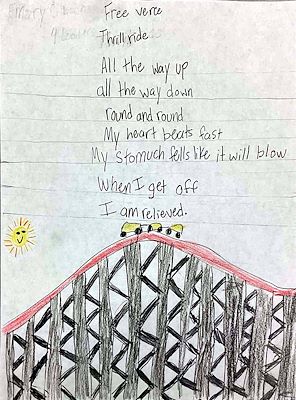 Free verce
Thrill ride
All the way up
all the way down
round and round
My heart beats fast
My stomuch fells like it will blow
When I get off
I am relieved.